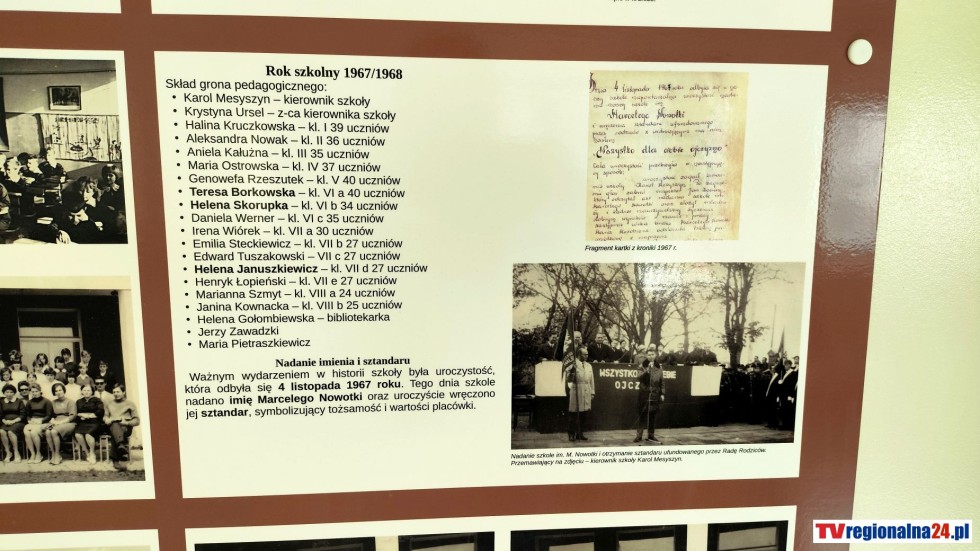 Rok szkolny 1967/1968
Skład grona pedagogicznego:
• Karol Mesyszyn – kierownik szkoły
• Krystyna Ursel – z-ca kierownika szkoły
• Halina Kruczkowska – kl. I 39 uczniów
• Aleksandra Nowak – kl. II 36 uczniów
• Aniela Kałużna – kl. III 35 uczniów
• Maria Ostrowska – kl. IV 37 uczniów
• Genowefa Rzeszutek – kl. V 40 uczniów
• Teresa Borkowska – kl. VI a 40 uczniów
• Helena Skorupka – kl. VI b 34 uczniów
• Daniela Werner – kl. VI c 35 uczniów
• Irena Wiórek – kl. VII a 30 uczniów
• Emilia Steckiewicz – kl. VII b 27 uczniów
• Edward Tuszakowski – VII c 27 uczniów
• Helena Januszkiewicz – kl. VII d 27 uczniów
• Henryk Łopieński – kl. VII e 27 uczniów
• Marianna Szmyt – kl. VIII a 24 uczniów
• Janina Kownacka – kl. VIII b 25 uczniów
• Helena Gołombiewska – bibliotekarka
• Jerzy Zawadzki
• Maria Pietraszkiewicz
Nadanie imienia i sztandaru
Ważnym wydarzeniem w historii szkoły była uroczystość,
która odbyła się 4 listopada 1967 roku. Tego dnia szkole
nadano imię Marcelego Nowotki oraz uroczyście wręczono
jej sztandar, symbolizujący tożsamość i wartości placówki.
4 listopada 1967
Marcelego Nowotki
"Wszystko dla ciebie ojczyzno"
Fragment kartki z kroniki 1967 r.
WSZYSTKO
OJCZ
Nadanie szkole im. M. Nowotki i otrzymanie sztandaru ufundowanego przez Radę Rodziców.
Przemawiający na zdjęciu – kierownik szkoły Karol Mesyszyn.
TVregionalna24.pl